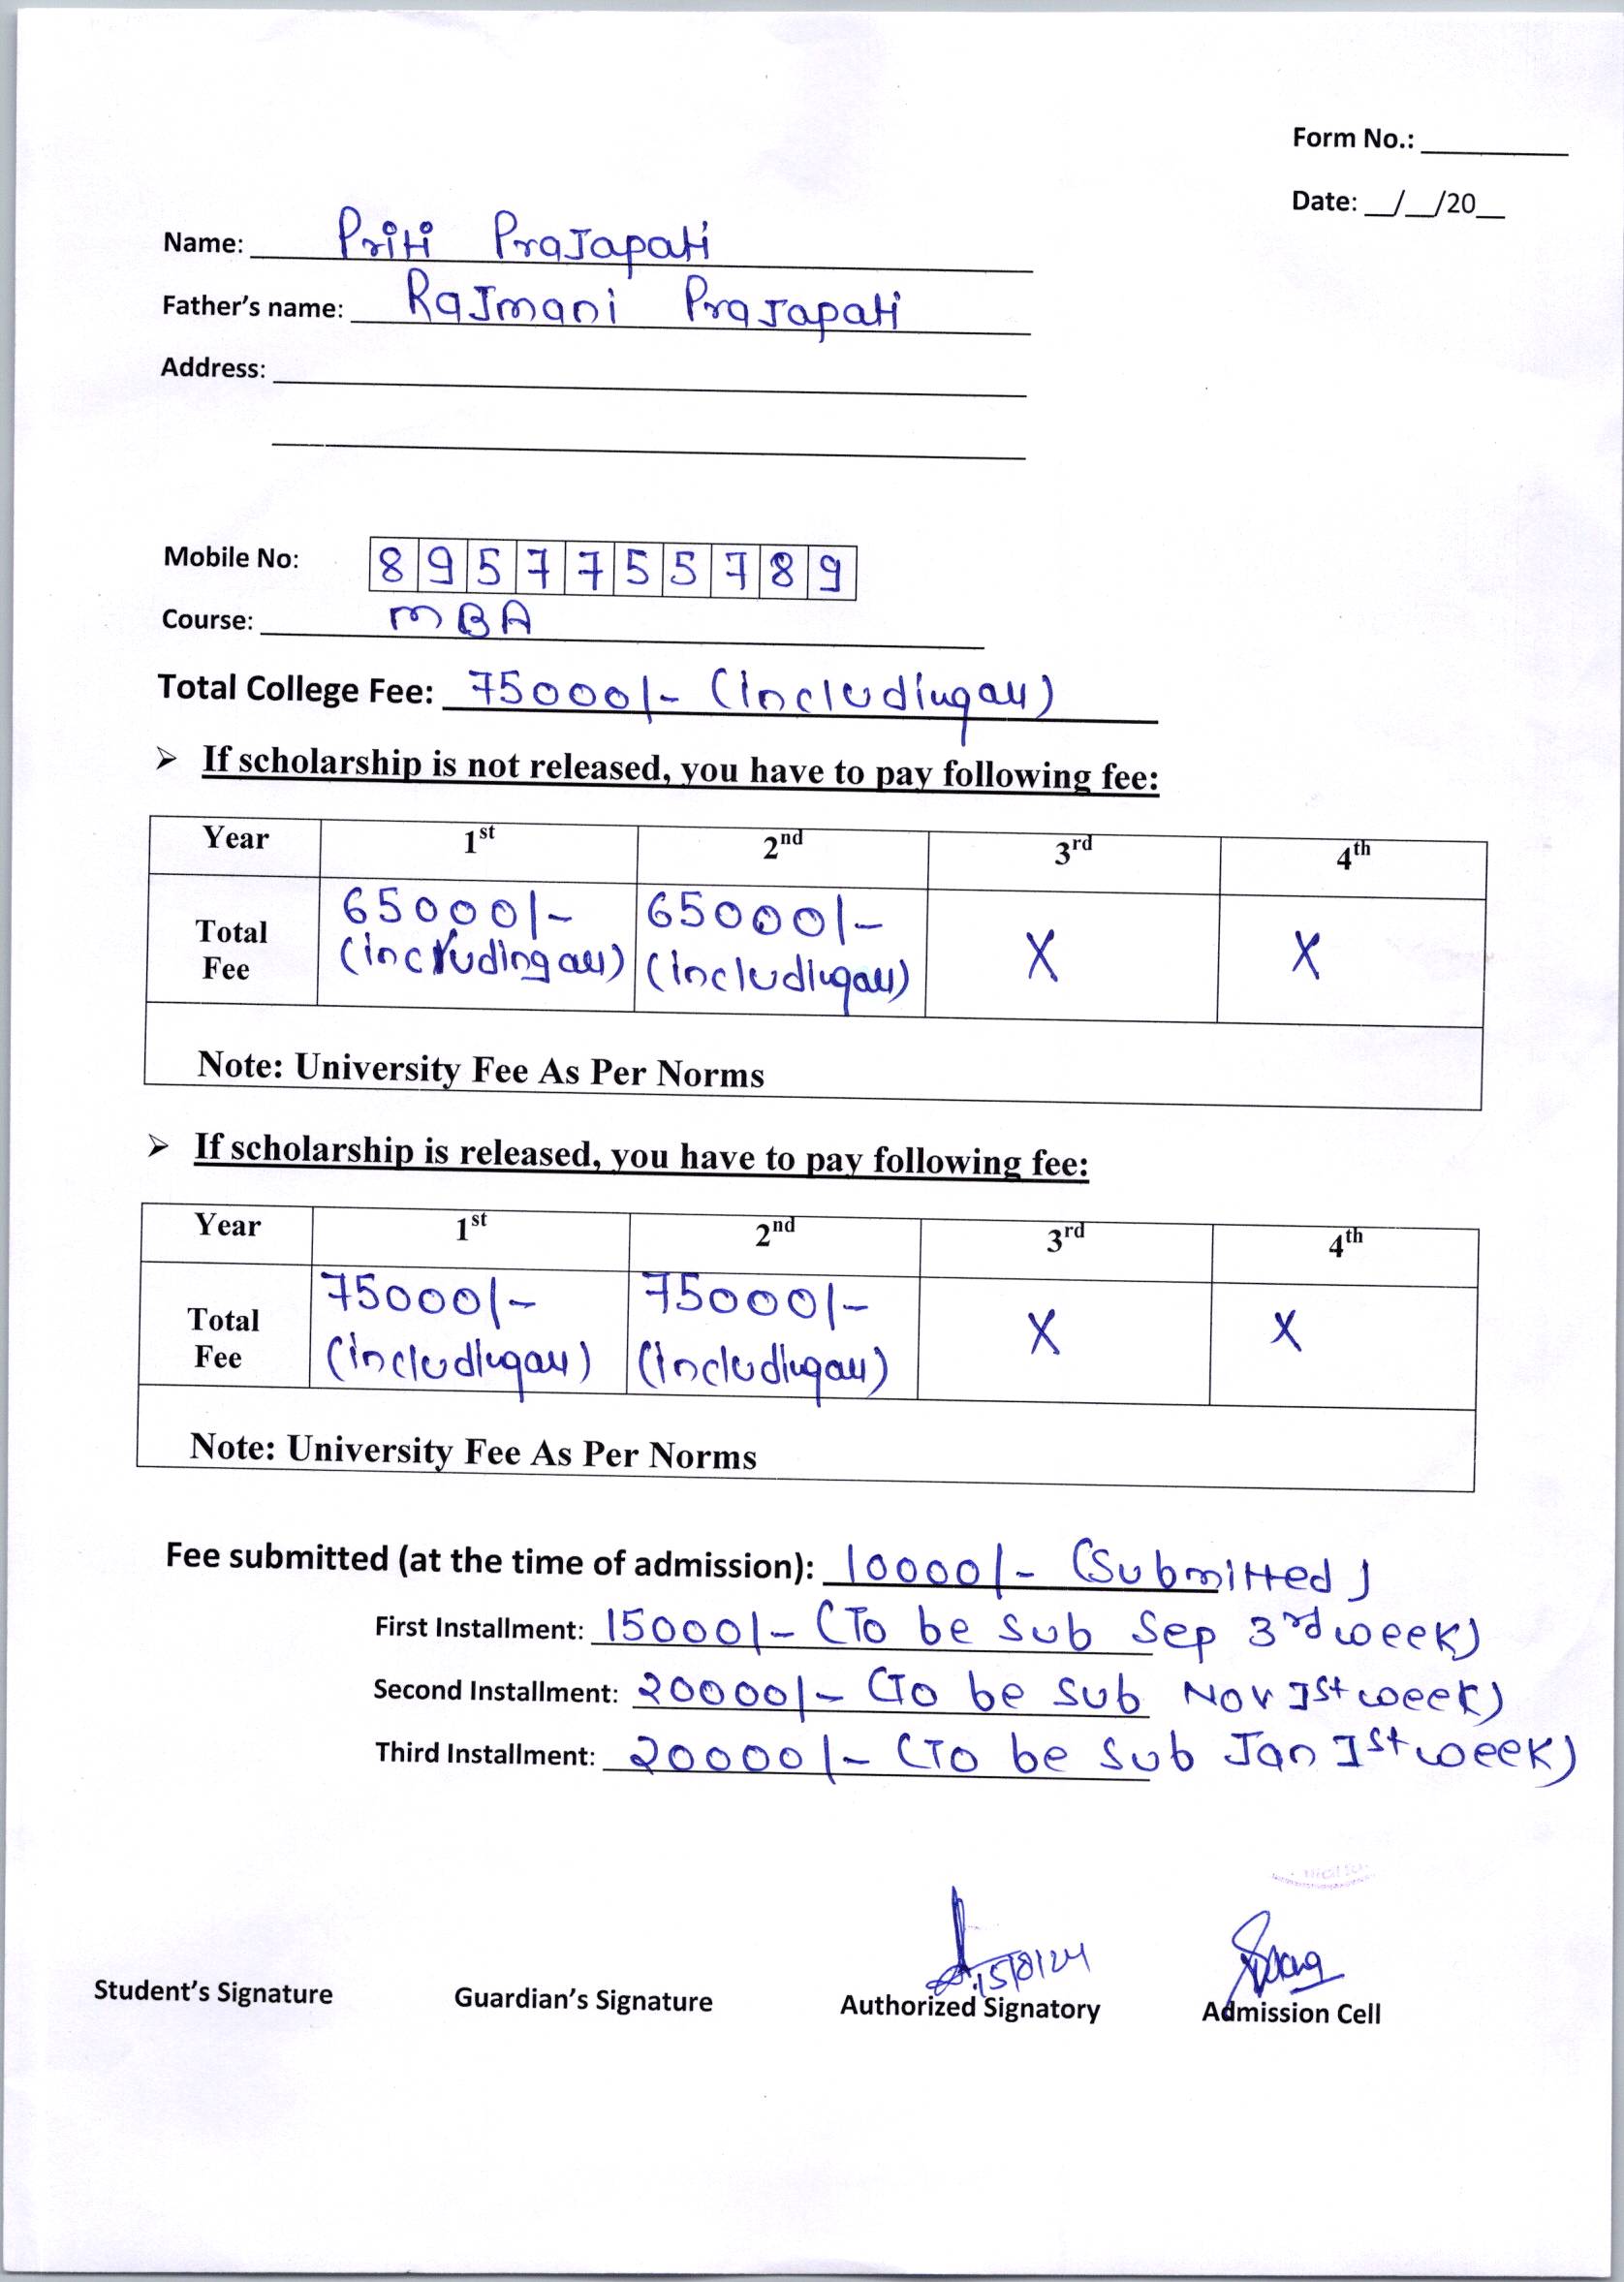 Form No.: ________
Date: __/__/20__
Name: Priti Prajapati
Father's name: Rajmani Prajapati
Address:
Mobile No: 8957755789
Course: MBA
Total College Fee: 75000/- (Including all)
➢ If scholarship is not released, you have to pay following fee:
Year 1st 2nd 3rd 4th
Total Fee 65000/- (including all) 65000/- (including all) X X
Note: University Fee As Per Norms
➢ If scholarship is released, you have to pay following fee:
Year 1st 2nd 3rd 4th
Total Fee 75000/- (including all) 75000/- (Including all) X X
Note: University Fee As Per Norms
Fee submitted (at the time of admission): 10000/- (Submitted)
First Installment: 15000/- (To be sub Sep 3rd week)
Second Installment: 20000/- (To be sub Nov Ist week)
Third Installment: 20000/- (To be sub Jan Ist week)
15/8/24
Student's Signature Guardian's Signature Authorized Signatory Admission Cell